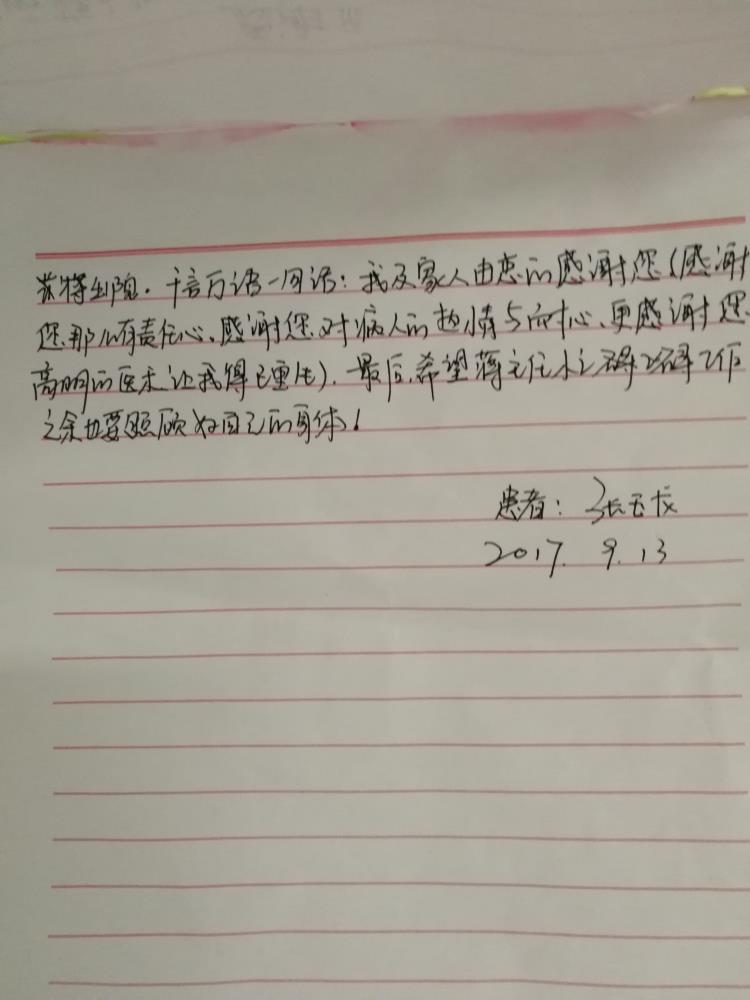 将出院。千言万语一句话：我及家人由衷的感谢您（感谢
您那么有责任心、感谢您对病人的热情与耐心、更感谢您
高明的医术让我得已重生）. 最后，希望蒋主任忙忙碌碌工作
之余也要照顾好自己的身体！
患者：张玉龙
2017. 9. 13